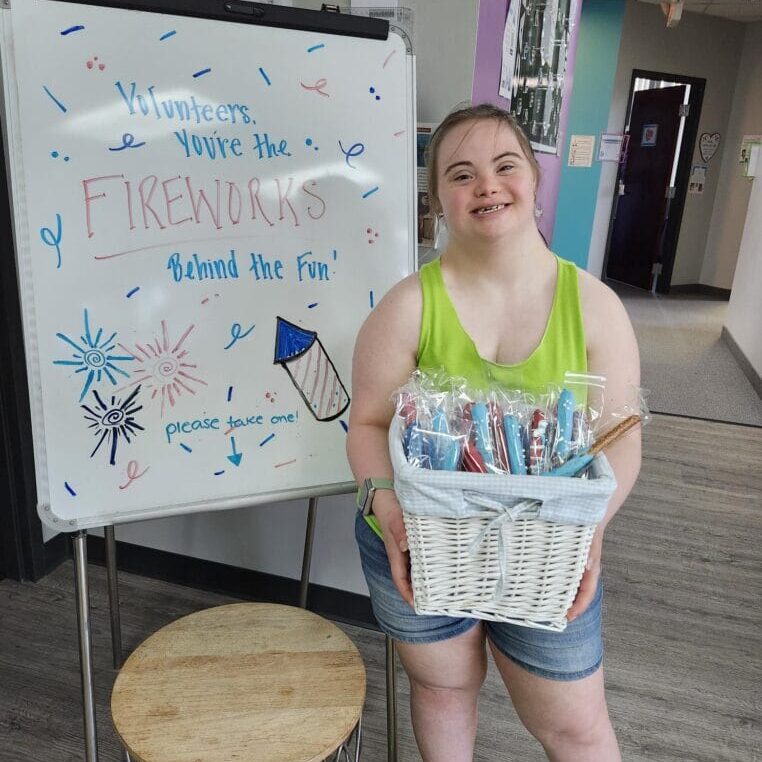 Volunteers,
You're the
FIREWORKS
Behind the Fun!
please take one!